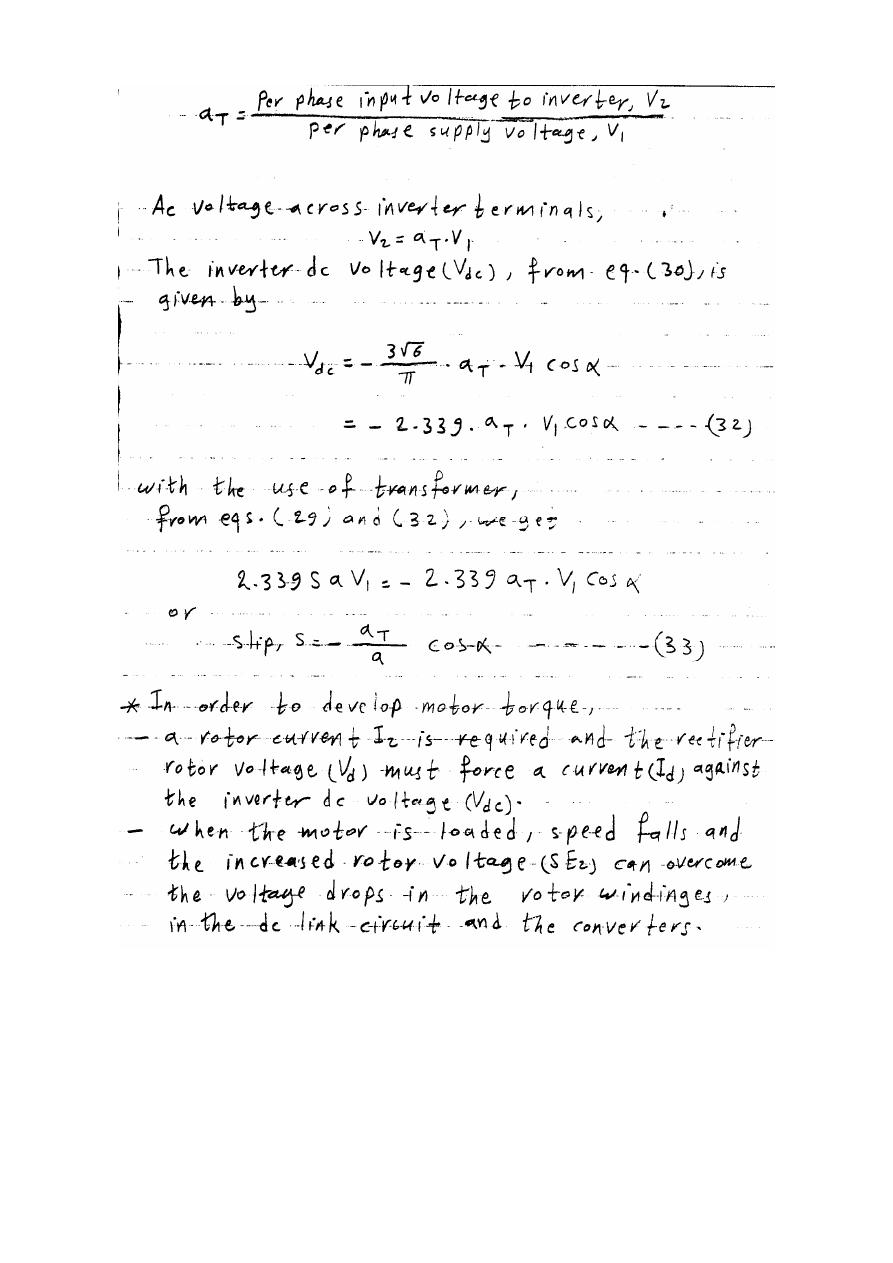 a_T = Per phase input voltage to inverter, V2 / per phase supply voltage, V1
Ac voltage across inverter terminals,
V2 = a_T . V1
The inverter dc voltage (Vdc), from eq. (30), is
given by
Vdc = - 3√6/π . a_T . V1 cos α
= - 2.339 . a_T . V1 cos α ---- (32)
with the use of transformer,
from eqs. (29) and (32), we get
2.339 S a V1 = - 2.339 a_T . V1 Cos α
or
slip, S = - a_T/a cos α ------- (33)
* In order to develop motor torque,
- a rotor current I2 is required and the rectifier
rotor voltage (Vd) must force a current (Id) against
the inverter dc voltage (Vdc).
- when the motor is loaded, speed falls and
the increased rotor voltage (SE2) can overcome
the voltage drops in the rotor windinges,
in the dc link circuit and the converters.